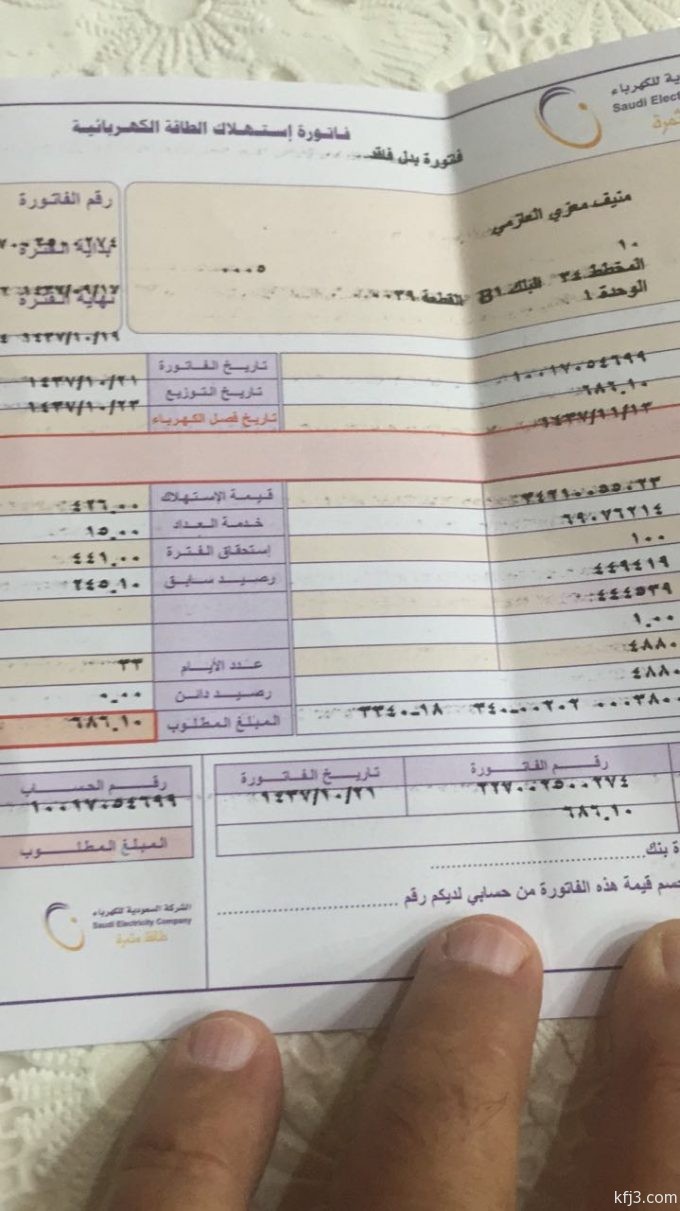 ية للكهرباء
Saudi Elect
فاتورة إستهلاك الطاقة الكهربائية
فاتورة بدل فاقد
رقم الفاتورة
منيف معزي العازمي
بداية الفترة
١٠
٠٠٠٥
المخطط ٣٤ البلك B١ القطعة ٠٠٠٣٩
نهاية الفترة ١٤٣٧/٠٩/١٧
الوحدة ١
١٤٣٧/١٠/١٩
١٠٠١٧٠٥٤٦٩٩ تاريخ الفاتورة ١٤٣٧/١٠/٢١
٦٨٦.١٠ تاريخ التوزيع ١٤٣٧/١٠/٢٣
١٤٣٧/١١/١٣ تاريخ فصل الكهرباء
٣٤٢١٠٠٥٥٠٢٣ قيمة الإستهلاك ٤٢٦.٠٠
٦٩٠٧٦٢١٤ خدمة العداد ١٥.٠٠
١٠٠ إستحقاق الفترة ٤٤١.٠٠
٤٤٩٤١٩ رصيد سابق ٢٤٥.١٠
٤٤٤٥٣٩
١.٠٠
٤٨٨٠ عدد الأيام ٣٣
٤٨٨٠ رصيد دائن ٠.٠٠
المبلغ المطلوب ٦٨٦.١٠
رقم الفاتورة تاريخ الفاتورة رقم الحساب
٢٢٧٠٠٢٥٠٠٢٧٤ ١٤٣٧/١٠/٢١ ١٠٠١٧٠٥٤٦٩٩
٦٨٦.١٠
المبلغ المطلوب
ة بنك
سم قيمة هذه الفاتورة من حسابي لديكم رقم
الشركة السعودية للكهرباء
Saudi Electricity Company
طاقة مثمرة
kfj3.com